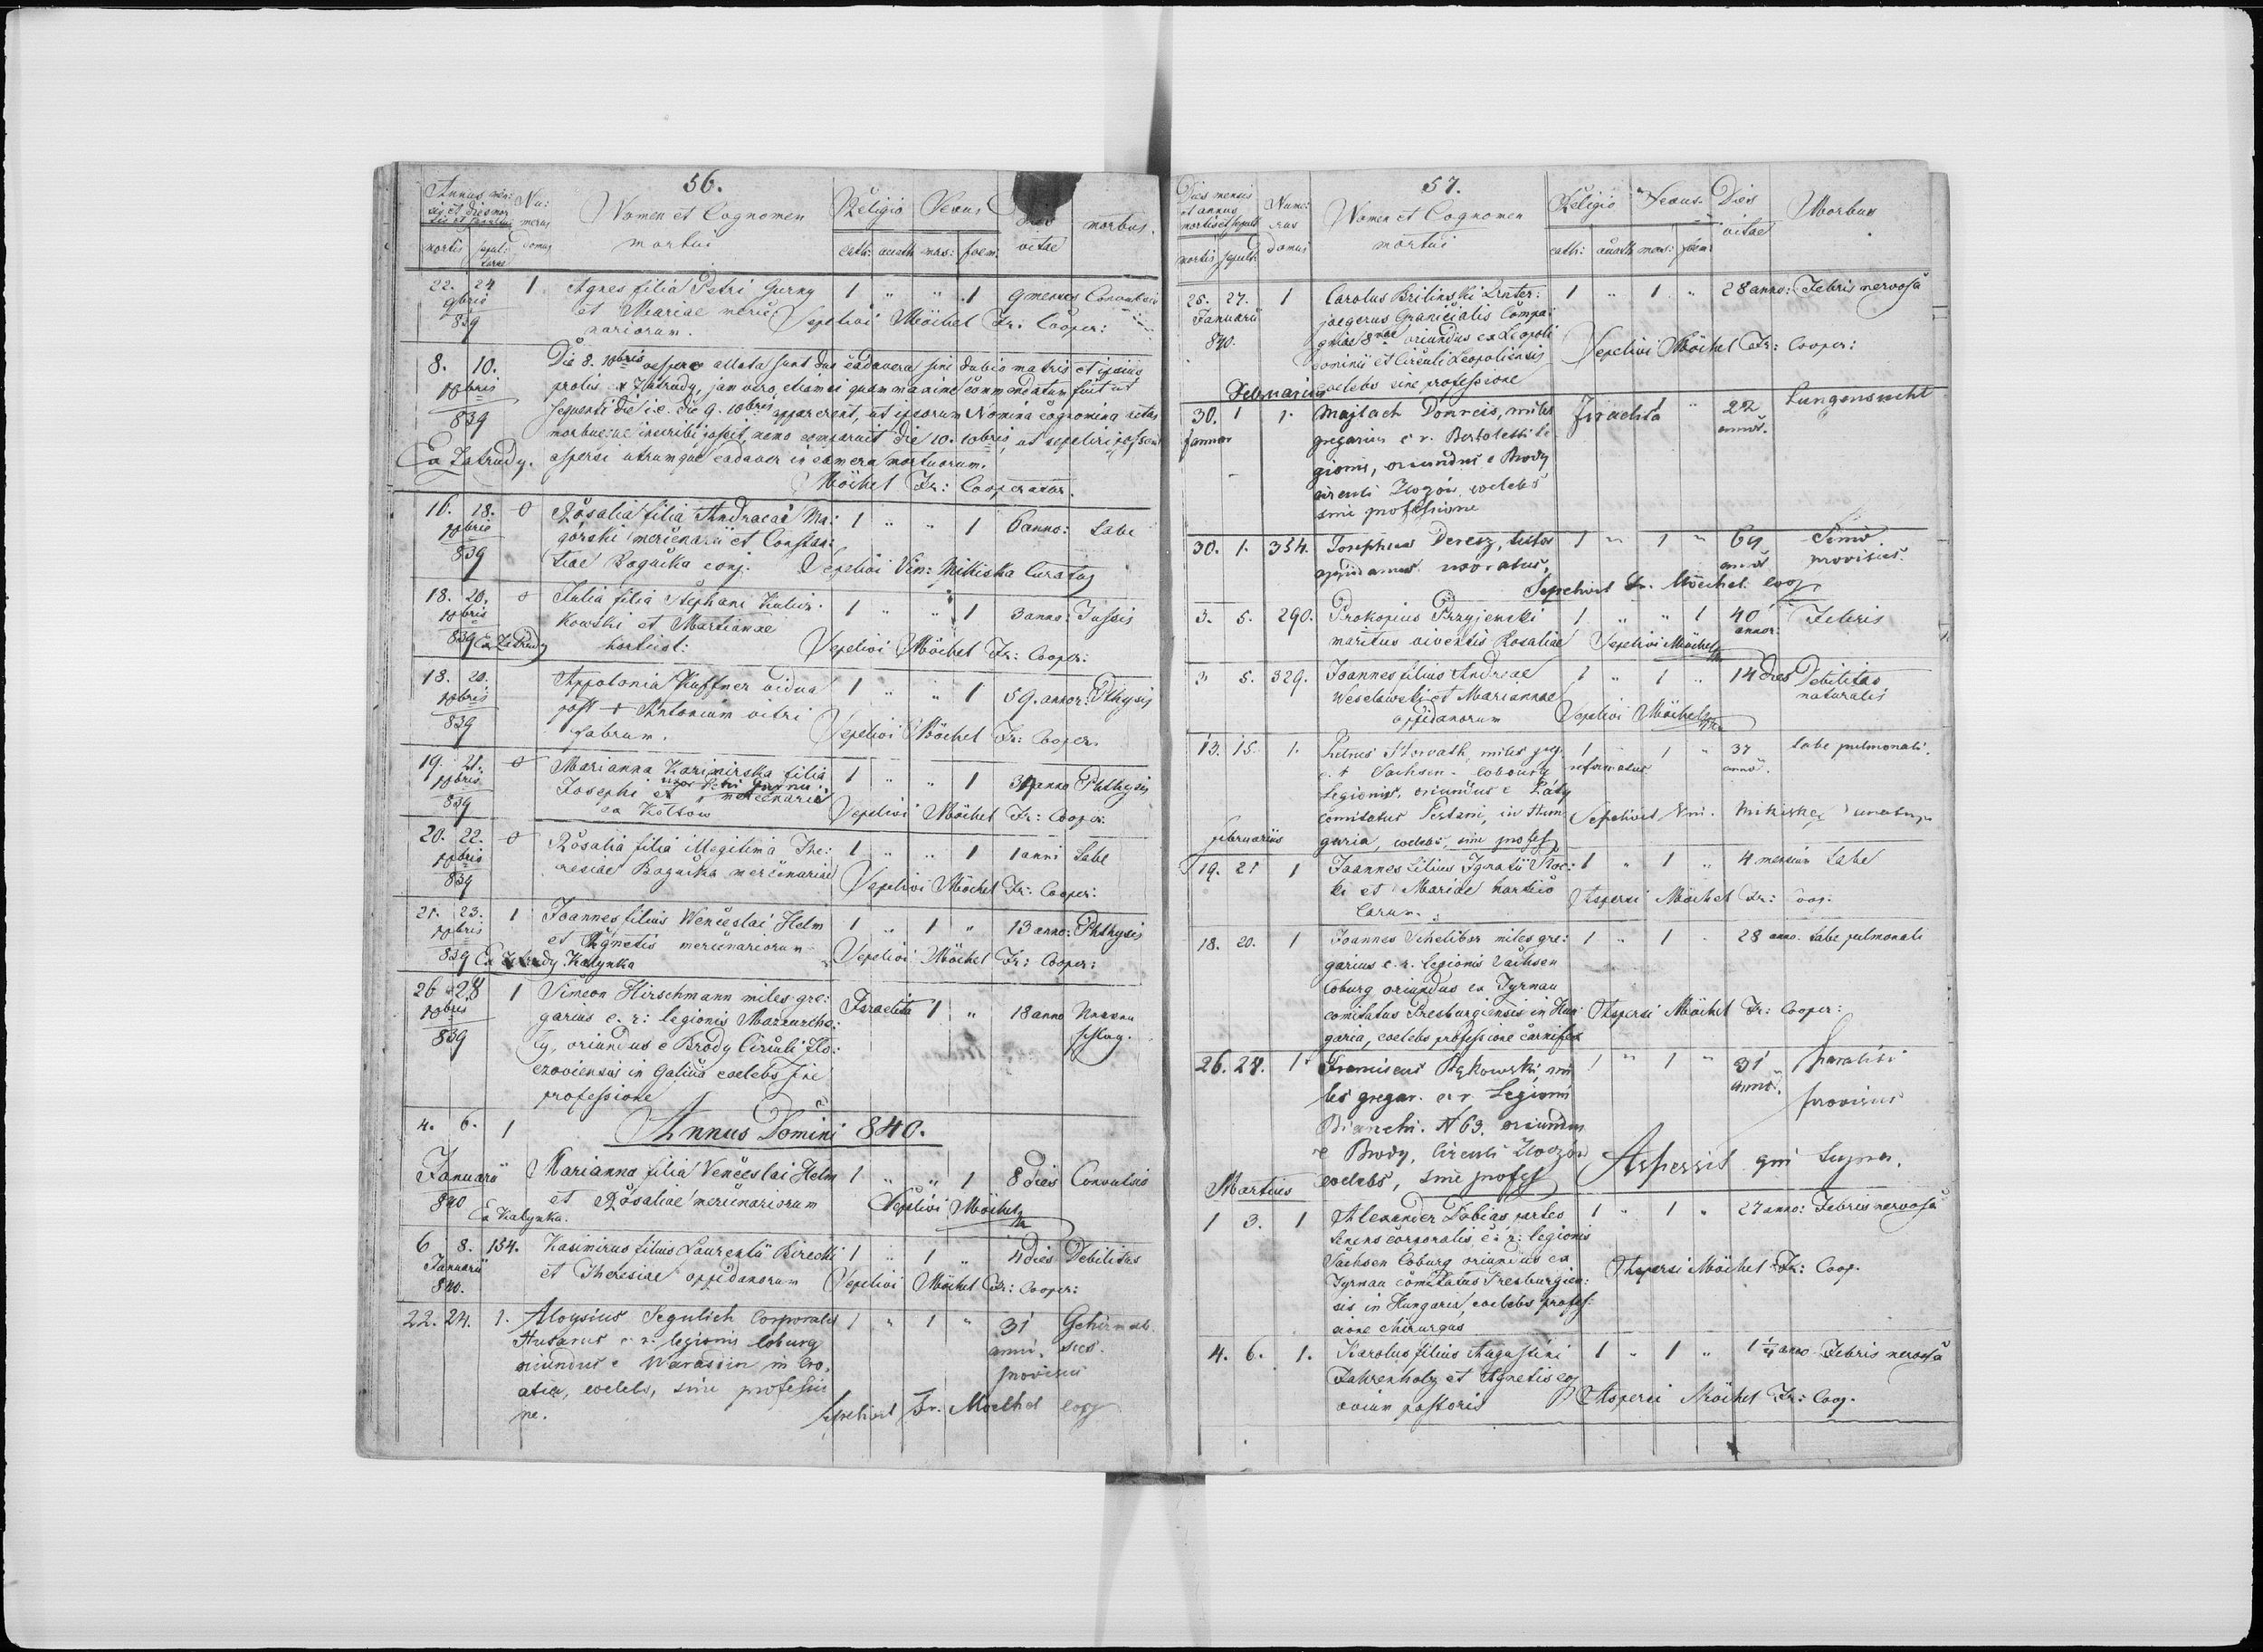 56.
Annus men: sis et dies mor tis et sepultu
Nu: merus domus
Nomen et Cognomen
mortui
Religio
Sexus
Dies vitae
morbus.
mortis
sepul: turae
cath:
acath
mas:
foem.
22. 24 1 Agnes filia Petri Gurny 1 " " 1 9 menses Convulsio
9bris et Mariae merce
839 nariorum. Sepelivi Möchel Fr: Cooper:
8. 10. Die 8. 10bris vespere allata sunt duo cadavera sine dubio matris et ipsius
10bris prolis ex Zatrudy, jam vero etiamsi quam maxime commendatum fuit ut
839 sequenti die i.e. die 9. 10bris apparerent, ut ipsorum Nomina cognomina aetas
morbusque inscribi possit, nemo comparuit die 10. 10bris, ut sepeliri possent
Ex Zatrudy. aspersi utrumque cadaver in camera mortuorum.
Möchel Fr: Cooperator.
16. 18. 0 Rosalia filia Andraeae Ma: 1 " " 1 6 anno: Labe
10bris górski mercenarii et Constan:
839 tiae Bogucka conj. Sepelivi Vin: Mikiska Curatus
18. 20. 0 Julia filia Stephani Kulik: 1 " " 1 3 anno: Tussis
10bris kowski et Mariannae
839 Ex Zatrudy horticol: Sepelivi Möchel Fr: Cooper:
18. 20. Appolonia Kuffner vidua 1 " " 1 59. annor: Phthysis
10bris post + Antonium vitri
839 fabrum. Sepelivi Möchel Fr: Cooper.
19. 21. 0 Marianna Karimirska filia 1 " " 1 37 anno Phthysis
10bris Josephi et uxor Petri mercenaria
839 ex Koltow Sepelivi Möchel Fr: Cooper:
20. 22. 0 Rosalia filia illegitima The: 1 " " 1 1 anni Labe
10bris resiae Bogucka mercenariae
839 Sepelivi Möchel Fr: Cooper:
21. 23. 1 Joannes filius Wenceslai Helm 1 " 1 " 13 anno: Phthysis
10bris et Agnetis mercenariorum
839 Ex Zatrudy Kalynka Sepelivi Möchel Fr: Cooper:
26 28 1 Simeon Hirschmann miles gre: Israelita 1 " 18 anno
10bris garius c. r: legionis Mazzuche:
839 ly, oriundus e Brody Circuli Zlo:
czoviensis in Galicia coelebs sine
professione
4. 6. 1 Annus Domini 840.
Januarii Marianna filia Venceslai Helm 1 " " 1 8 dies Convulsio
840 et Rosaliae mercenariorum Sepelivi Möchel
Ex Kalynka.
6 8. 154. Kasimirus filius Laurentii Birecki 1 " 1 " 4 dies Debilitas
Januarii et Theresiae oppidanorum Sepelivi Möchel Fr: Cooper:
840.
22. 24. 1. Aloysius Segulich Corporalis 1 " 1 " 31
Husarus c. r. legionis Coburg anni.
oriundus e Warasdin in Cro: provisus
atia, coelebs, sine professio
ne. Sepelivit Fr. Moechel coop
57.
Dies mensis et annus mortis et sepult
Nume: rus domus
Nomen et Cognomen
mortui
Religio
Sexus
Dies vitae
Morbus
mortis
sepult:
cath:
acath
mas:
foem:
25. 27. 1 Carolus Brilinski 1 " 1 " 28 anno: Febris nervosa
Januarii jaegerus Granicialis Compa:
840. gniae 8vae oriundus ex Leopoli
Dominii et Circuli Leopoliensis Sepelivi Möchel Fr: Cooper:
Februarius coelebs sine professione
30. 1 1. Majlach Donreis, miles Israelita 1 " 22 Lungensucht
januar gregarius c. r. Bertoletti le annor.
gionis, oriundus e Brody
circuli Zloczów, coelebs
sine professione
30. 1. 354. Josephus Deresz, 1 " 1 " 64 Senio
oppidanus uxoratus. annor provisus.
Sepelivit Fr. Möchel coop
3. 5. 290. Prokopius Przyjemski 1 " " 1 40 Febris
maritus viventis Rosaliae Sepelivi Möchel annor:
3 5. 329. Joannes filius Andreae 1 " 1 " 14 dies Debilitas
Weselowski et Mariannae naturalis
oppidanorum Sepelivi Möchel
13. 15. 1. Petrus Horvath, miles greg. 1 1 " 37 labe pulmonali.
c. r. Sachsen-Cobourg reformatus annor.
Legionis, oriundus e Páty
Comitatus Pestani, in Hun Sepelivit Vin. Mikiska Curatus
februarius garia, coelebs, sine profes
19. 21 1 Joannes filius Ignatii Koc: 1 " 1 " 4 mensium Labe
ki et Mariae hortico
larum. Aspersi Möchel Fr: Coop.
18. 20. 1 Joannes Schelibor miles gre: 1 " 1 " 28 anno. Labe pulmonali
garius c. r. legionis Sachsen
Coburg oriundus ex Tyrnau
comitatus Presburgiensis in Hun Aspersi Möchel Fr: Cooper:
garia, coelebs professione carnifex
26. 28. 1. Franciscus Bękowski mi 1 " 1 " 31
les gregar. c. r. Legionis annor. provisus
Bianchi. N 63. oriundus
e Brody, Circuli Zloczów Aspersit qui supra.
Martius coelebs, sine profess
1 3. 1 Alexander Tobias partes 1 " 1 " 27 anno: Febris nervosa
tenens corporalis c: r: legionis
Sachsen Coburg oriundus ex
Tyrnau comitatus Presburgien: Aspersi Möchel Fr: Coop.
sis in Hungaria, coelebs profes:
sione chirurgus
4. 6. 1. Karolus filius Augustini 1 " 1 " 1 1/4 anno Febris nervosa
Fahrenholz et Agnetis
ovium pastoris Aspersi Möchel Fr: Coop.